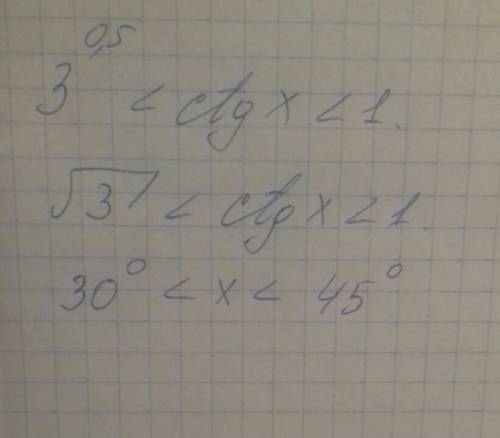 3^0,5 < ctg x < 1.
√3 < ctg x < 1.
30° < x < 45°